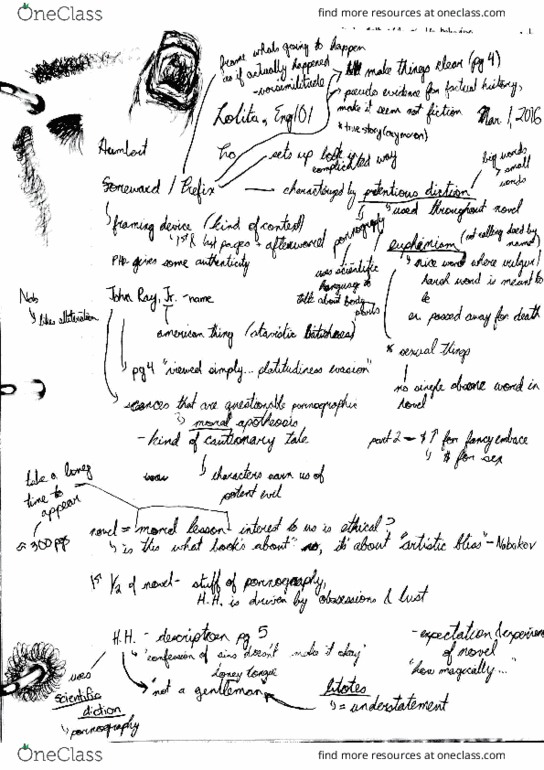 OneClass
find more resources at oneclass.com
frame whats going to happen
as if actually happened
- verisimilitude
make things clear (pg 4)
pseudo evidence for factual history,
make it seem not fiction
* true story (oxymoron)
Lolita, Eng101
Mar 1, 2016
Humbert
sets up book in
complicated way
big words
small
words
Foreward / Prefix — characterized by pretentious diction
used throughout novel
framing device (kind of context)
1st & last pages + afterword
PHd gives some authenticity
pornography
uses scientific
language to
talk about body
parts
euphemism (not calling deed by
name)
nice word where vulgar/
harsh word is meant to
be
ex. passed away for death
* sexual things
no single obscene word in
novel
Nab
likes alliteration
John Ray, Jr. - name
american thing
pg 4 "viewed simply... platitudinous evasion"
scences that are questionable pornographic
moral apotheosis
- kind of cautionary tale
characters warn us of
potent evil
part 2 - $ ↑ for fancy embrace
$ for sex
take a long
time to
appear
≈ 300 pp
novel = moral lesson interest to us is ethical?
is this what book's about" no, it's about "artistic bliss" - Nabokov
1st 1/2 of novel - stuff of pornography,
H.H. is driven by obsessions & lust
H.H. - description pg 5
"confession of sins doesn't make it okay"
honey tongue
"not a gentleman"
uses
scientific
diction
pornography
litotes
= understatement
- expectation & experience
of novel
"how magically..."
OneClass
find more resources at oneclass.com